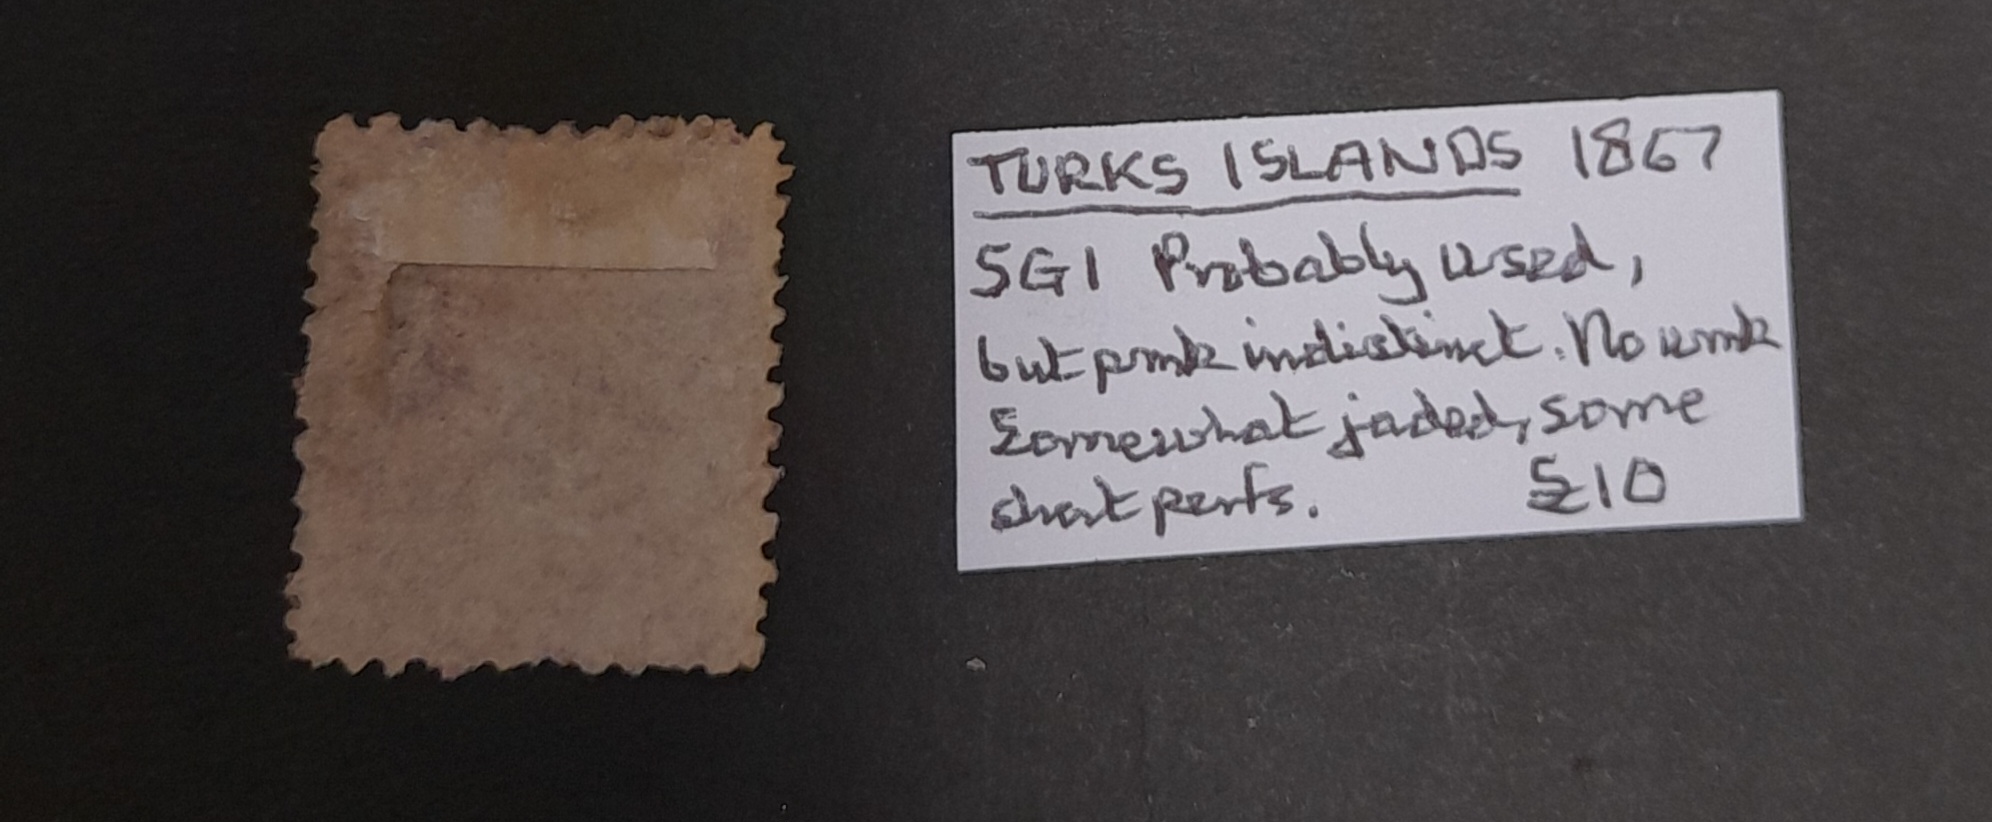 TURKS ISLANDS 1867
SG1 Probably used,
but pmk indistinct. No wmk
Somewhat jaded, some
short perfs. £10